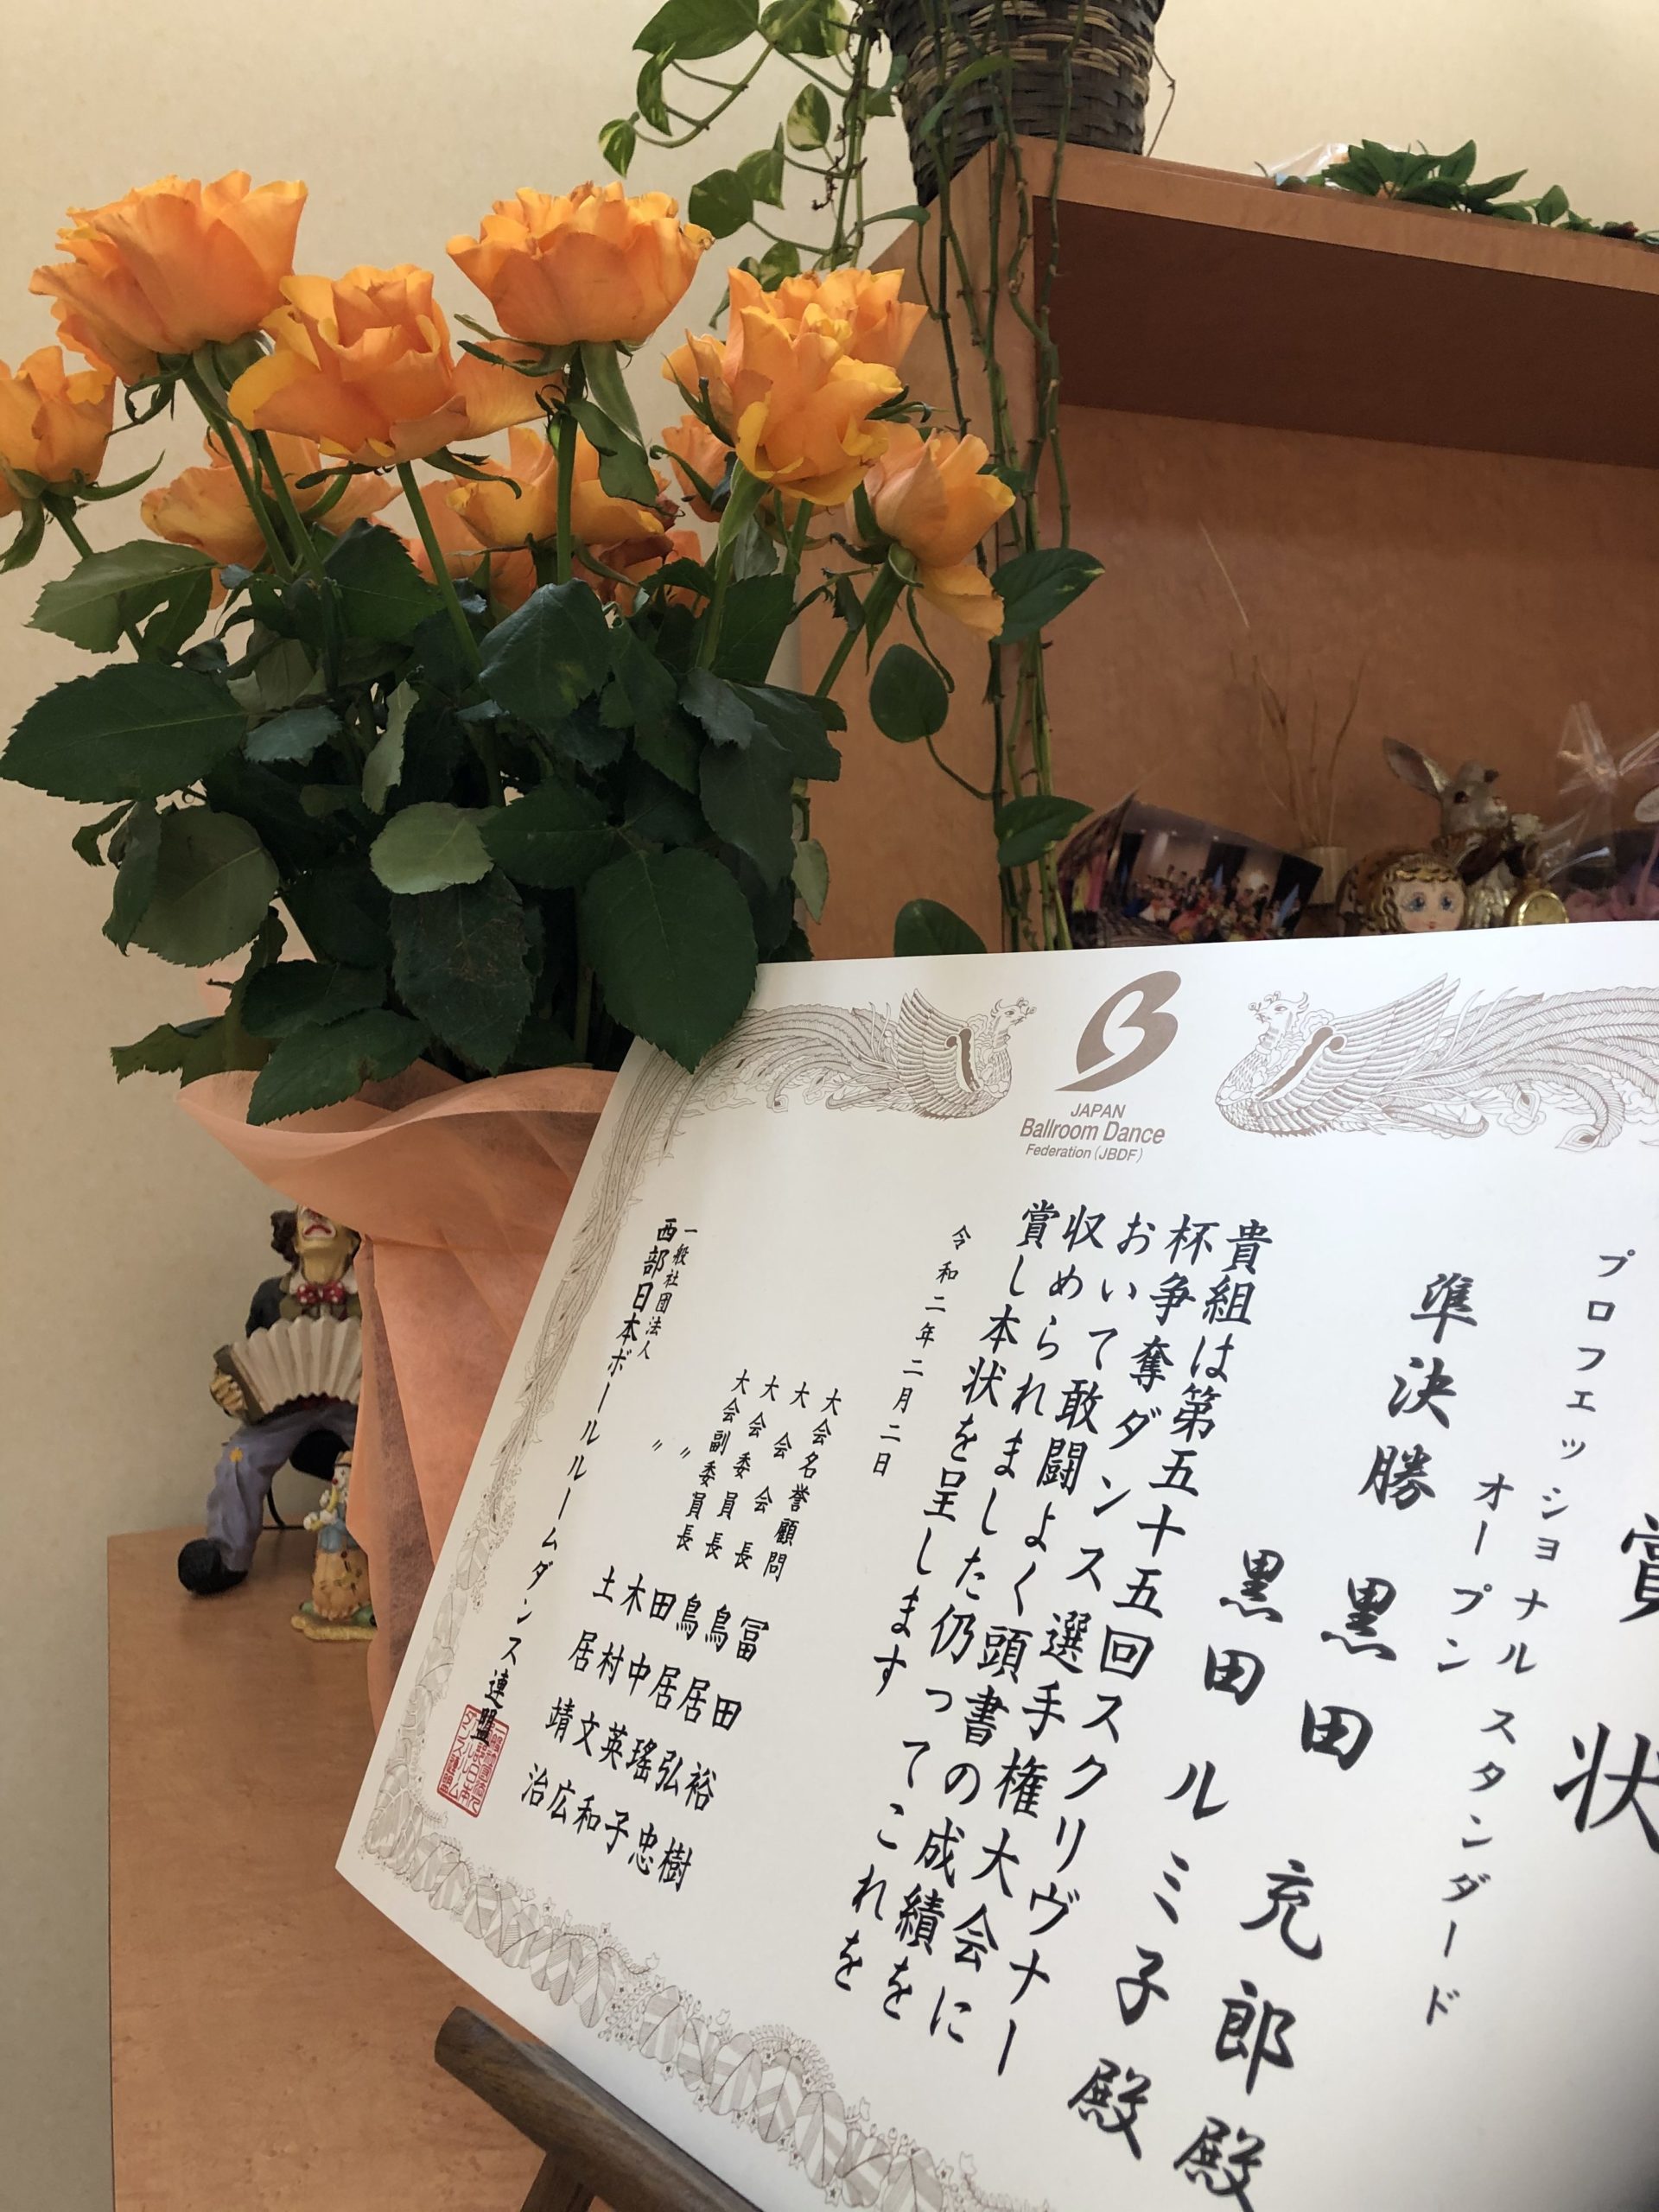 JAPAN
Ballroom Dance
Federation (JBDF)
賞状
プロフェッショナル スタンダード
オープン
準決勝
黒田 充郎 殿
黒田 ルミ子 殿
貴組は第五十五回スクリヴナー
杯争奪ダンス選手権大会に
おいて敢闘よく頭書の成績を
収められました仍ってこれを
賞し本状を呈します
令和二年二月二日
大会名誉顧問 冨田裕樹
大会会長 鳥居弘忠
大会委員長 鳥居瑤子
大会副委員長 田中英和
〃 木村文広
〃 土居靖治
一般社団法人
西部日本ボールルームダンス連盟